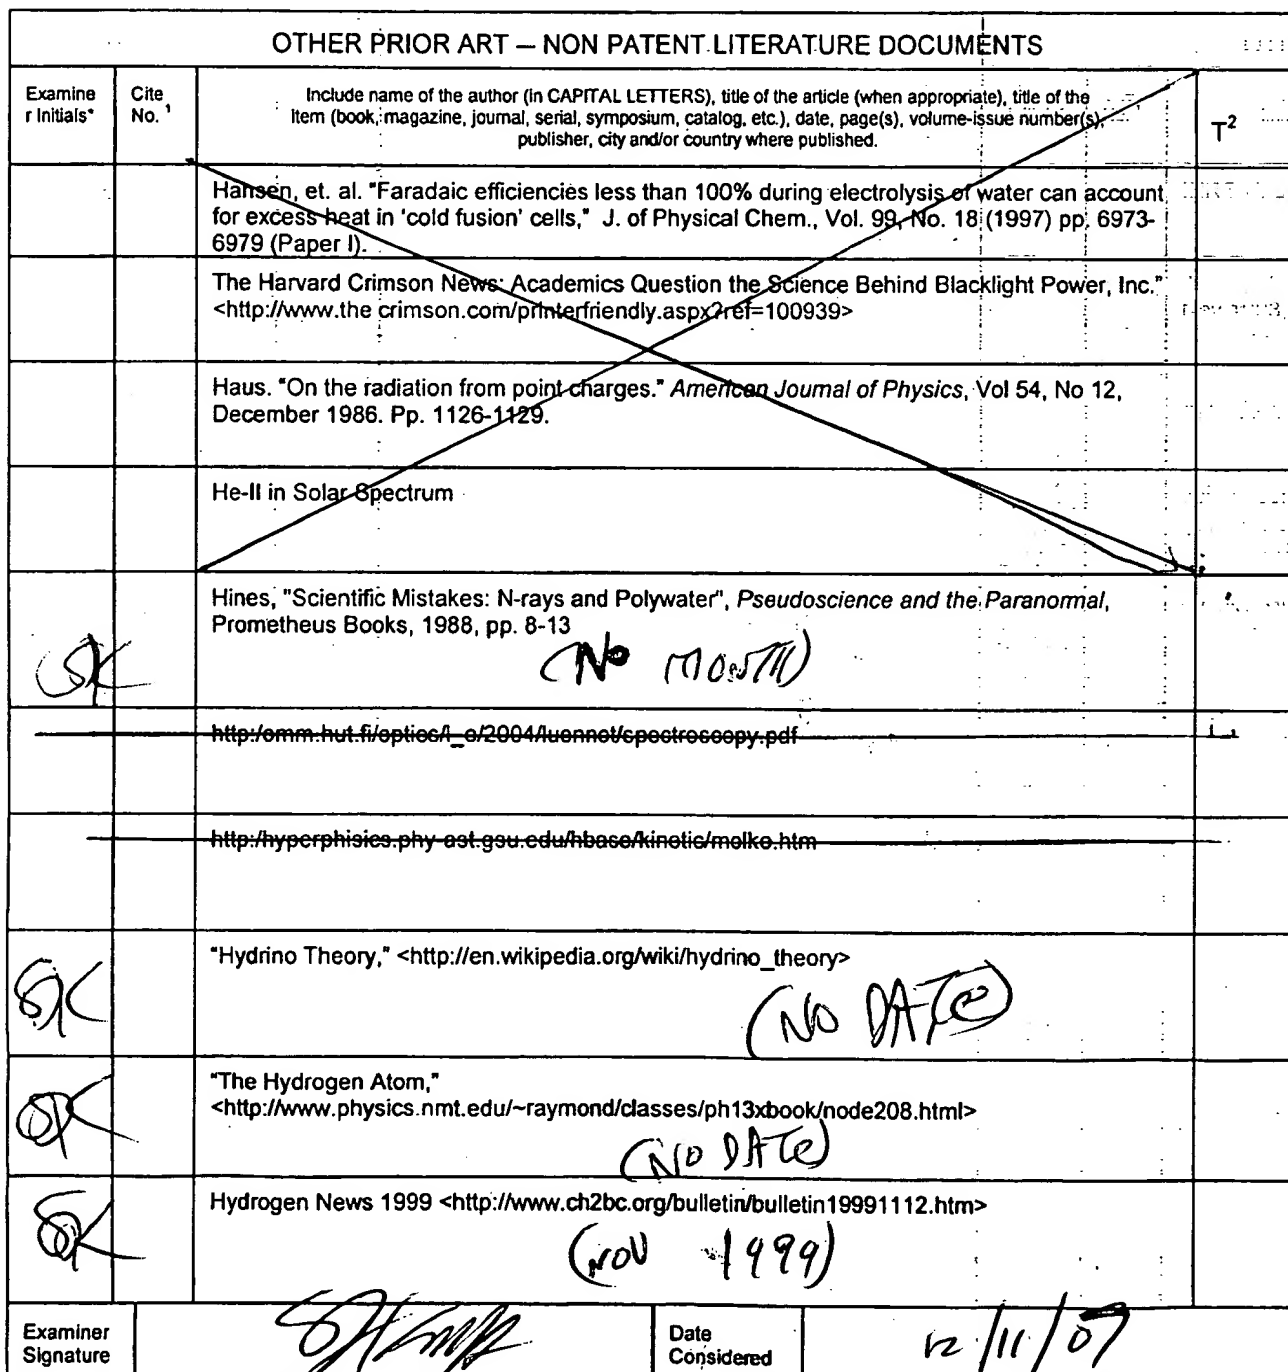 OTHER PRIOR ART – NON PATENT LITERATURE DOCUMENTS
Examine
r Initials*
Cite
No. 1
Include name of the author (in CAPITAL LETTERS), title of the article (when appropriate), title of the
item (book, magazine, journal, serial, symposium, catalog, etc.), date, page(s), volume-issue number(s),
publisher, city and/or country where published.
T2
Hansen, et. al. "Faradaic efficiencies less than 100% during electrolysis of water can account
for excess heat in 'cold fusion' cells," J. of Physical Chem., Vol. 99, No. 18 (1997) pp. 6973-
6979 (Paper I).
The Harvard Crimson News: Academics Question the Science Behind Blacklight Power, Inc."
<http://www.the crimson.com/printerfriendly.aspx?ref=100939>
Haus. "On the radiation from point charges." American Journal of Physics, Vol 54, No 12,
December 1986. Pp. 1126-1129.
He-II in Solar Spectrum
Hines, "Scientific Mistakes: N-rays and Polywater", Pseudoscience and the Paranormal,
Prometheus Books, 1988, pp. 8-13
SK
(No MONTH)
http:/omm.hut.fi/optics/l_o/2004/luennot/spectroscopy.pdf
http:/hyperphisics.phy-ast.gsu.edu/hbase/kinetic/molke.htm
"Hydrino Theory," <http://en.wikipedia.org/wiki/hydrino_theory>
SK
(NO DATE)
"The Hydrogen Atom,"
<http://www.physics.nmt.edu/~raymond/classes/ph13xbook/node208.html>
SK
(NO DATE)
Hydrogen News 1999 <http://www.ch2bc.org/bulletin/bulletin19991112.htm>
SK
(NOV 1999)
Examiner
Signature
Date
Considered
12/11/07